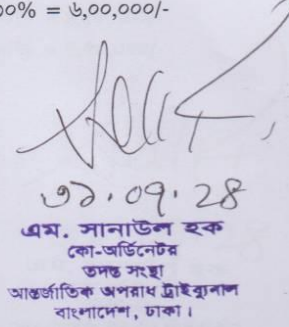 ০০% = ৬,০০,০০০/-
৩১.০৭.২৪
এম. সানাউল হক
কো-অর্ডিনেটর
তদন্ত সংস্থা
আন্তর্জাতিক অপরাধ ট্রাইব্যুনাল
বাংলাদেশ, ঢাকা।